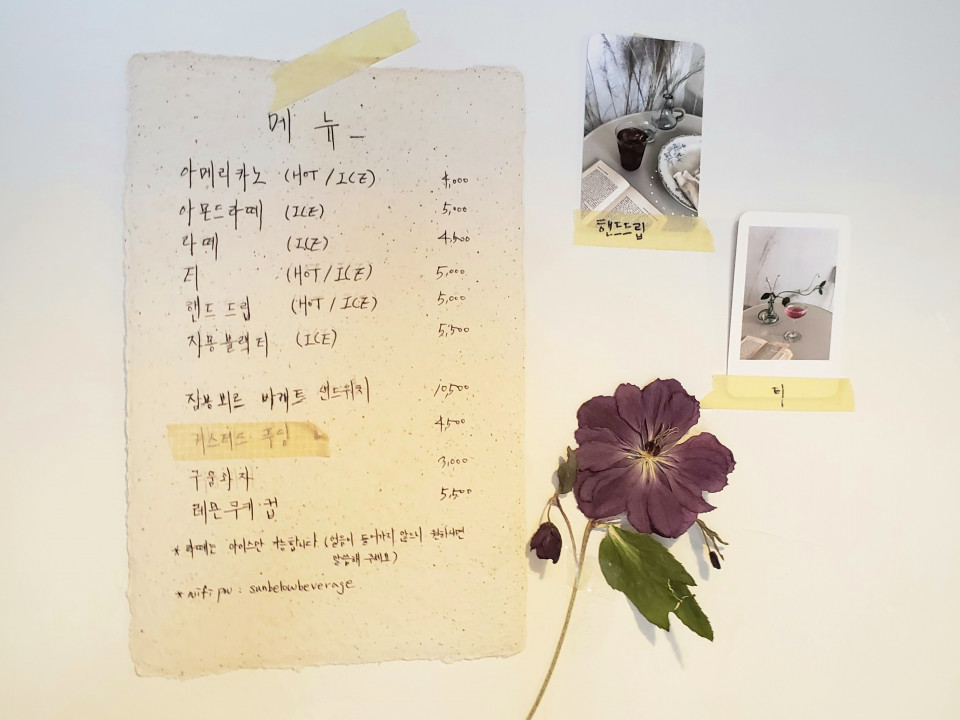 메뉴_
아메리카노 (HOT / ICE) 4,000
아몬드라떼 (ICE) 5,000
라떼 (ICE) 4,500
티 (HOT / ICE) 5,000
핸드드립 (HOT / ICE) 5,000
자몽블랙티 (ICE) 5,500
잠봉뵈르 바게트 샌드위치 10,500
커스터드 푸딩 4,500
구움과자 3,000
레몬무키컵 5,500
* 라떼는 아이스만 가능합니다 (얼음이 들어가지 않으니 원하시면
말씀해 주세요)
* wifi pw : sunbelowbeverage
핸드드립
티